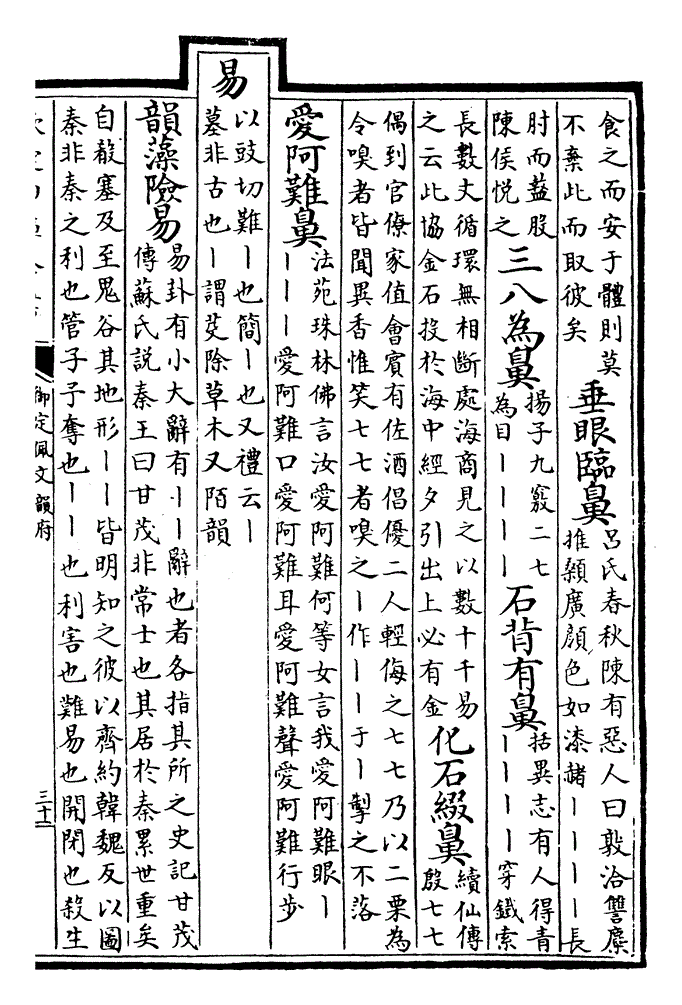 食之而安于體則莫
不棄此而取彼矣
垂眼臨鼻
呂氏春秋陳有惡人曰敦洽讐麋
推顙廣顔色如漆赭丨丨丨丨長
肘而盭股
陳侯悦之
三八為鼻
揚子九竅二七
為目丨丨丨丨
石背有鼻
括異志有人得青
丨丨丨丨穿鐵索
長數丈循環無相斷處海商見之以數十千易
之云此協金石投於海中經夕引出上必有金
化石綴鼻
續仙傳
殷七七
偶到官僚家值會賓有佐酒倡優二人輕侮之七七乃以二栗為
令嗅者皆聞異香惟笑七七者嗅之丨作丨丨于丨掣之不落
愛阿難鼻
法苑珠林佛言汝愛阿難何等女言我愛阿難眼丨
丨丨丨愛阿難口愛阿難耳愛阿難聲愛阿難行步
易
以豉切難丨也簡丨也又禮云丨
墓非古也丨謂芟除草木又陌韻
韻藻險易
易卦有小大辭有丨丨辭也者各指其所之史記甘茂
傳蘇氏説秦王曰甘茂非常士也其居於秦累世重矣
自殽塞及至鬼谷其地形丨丨皆明知之彼以齊約韓魏反以圖
秦非秦之利也管子予奪也丨丨也利害也難易也開閉也殺生
御定佩文韻府
三十二